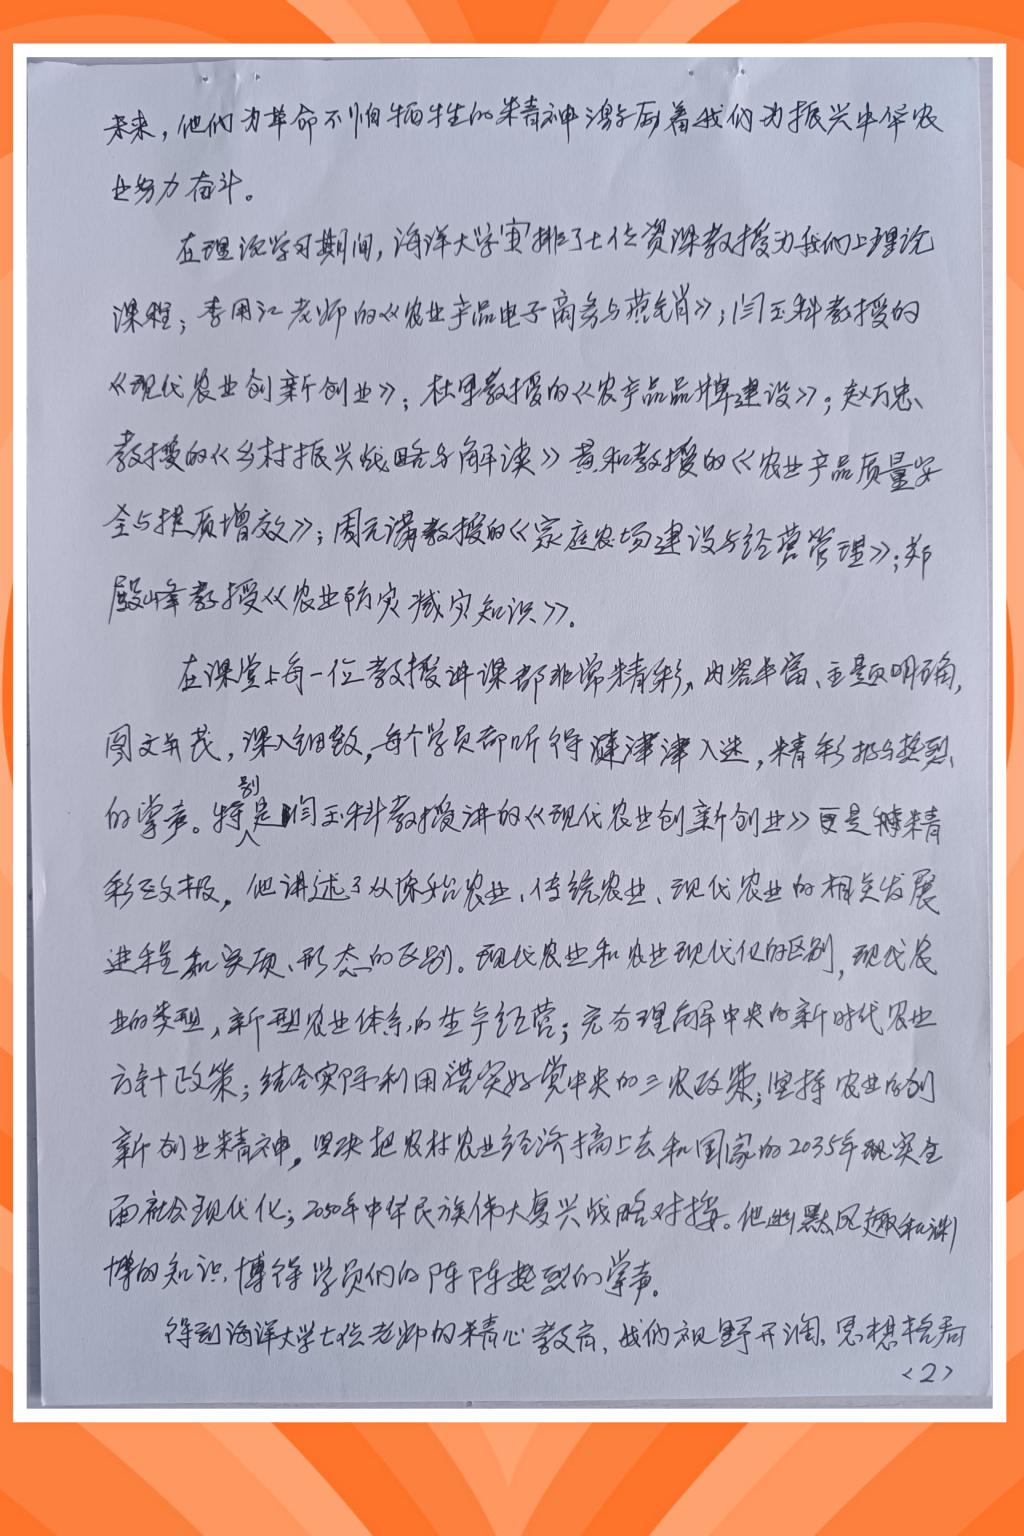 未来，他们为革命不怕牺牲的精神激励着我们为振兴中华农
业努力奋斗。
在理论学习期间，海洋大学安排了七位资深教授为我们上理论
课程；李用江老师的《农业产品电子商务与营销》；闫玉科教授的
《现代农业创新创业》；杜军教授的《农产品品牌建设》；赵万忠
教授的《乡村振兴战略与解读》黄和教授的《农业产品质量安
全与提质增效》；周元满教授的《家庭农场建设与经营管理》；郑
殿峰教授《农业防灾减灾知识》。
在课堂上每一位教授讲课都非常精彩，内容丰富、主题明确，
图文并茂，深入细致，每个学员都听得津津入迷，精彩报与热烈
的掌声。特别是闫玉科教授讲的《现代农业创新创业》更是精
彩致极，他讲述了从原始农业、传统农业、现代农业的相关发展
进程和实质、形态的区别。现代农业和农业现代化的区别，现代农
业的类型，新型农业体系的生产经营；充分理解中央的新时代农业
方针政策；结合实际利用落实好党中央的三农政策；坚持农业的创
新创业精神，坚决把农村农业经济搞上去和国家的2035年现实全
面社会现代化；2050年中华民族伟大复兴战略对接。他幽默风趣和渊
博的知识，博得学员们的阵阵热烈的掌声。
得到海洋大学七位老师的精心教育，我们视野开阔，思想格局
<2>